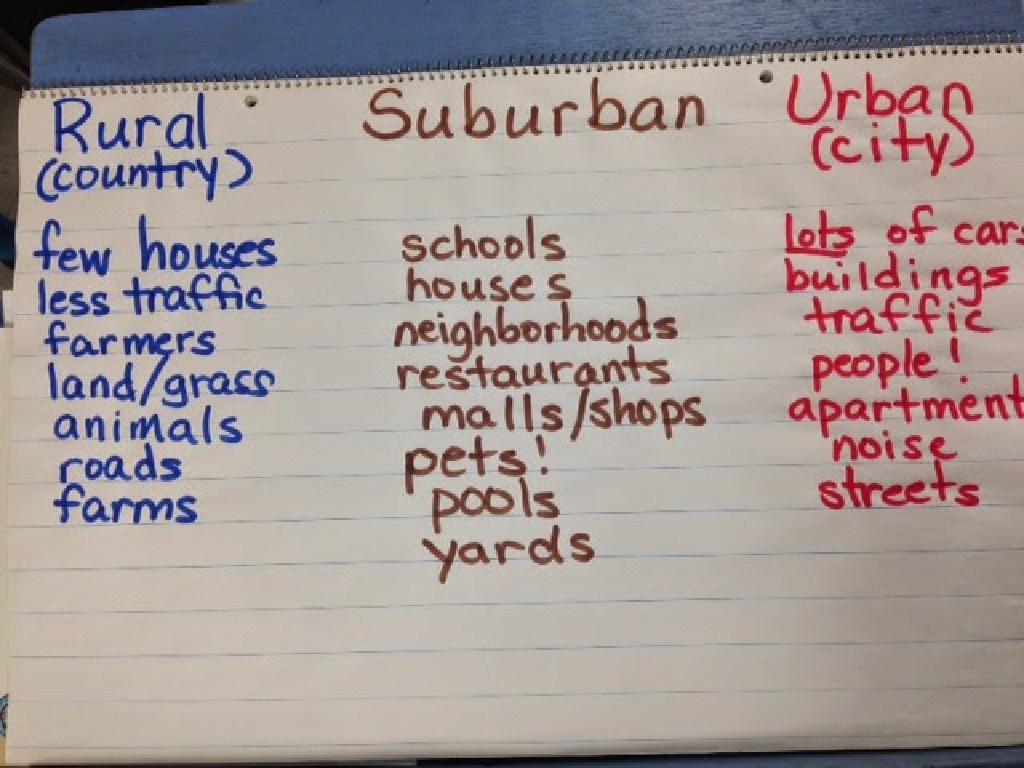 Rural
(country)
few houses
less traffic
farmers
land/grass
animals
roads
farms
Suburban
schools
houses
neighborhoods
restaurants
malls/shops
pets!
pools
yards
Urban
(city)
lots of cars
buildings
traffic
people!
apartment
noise
streets